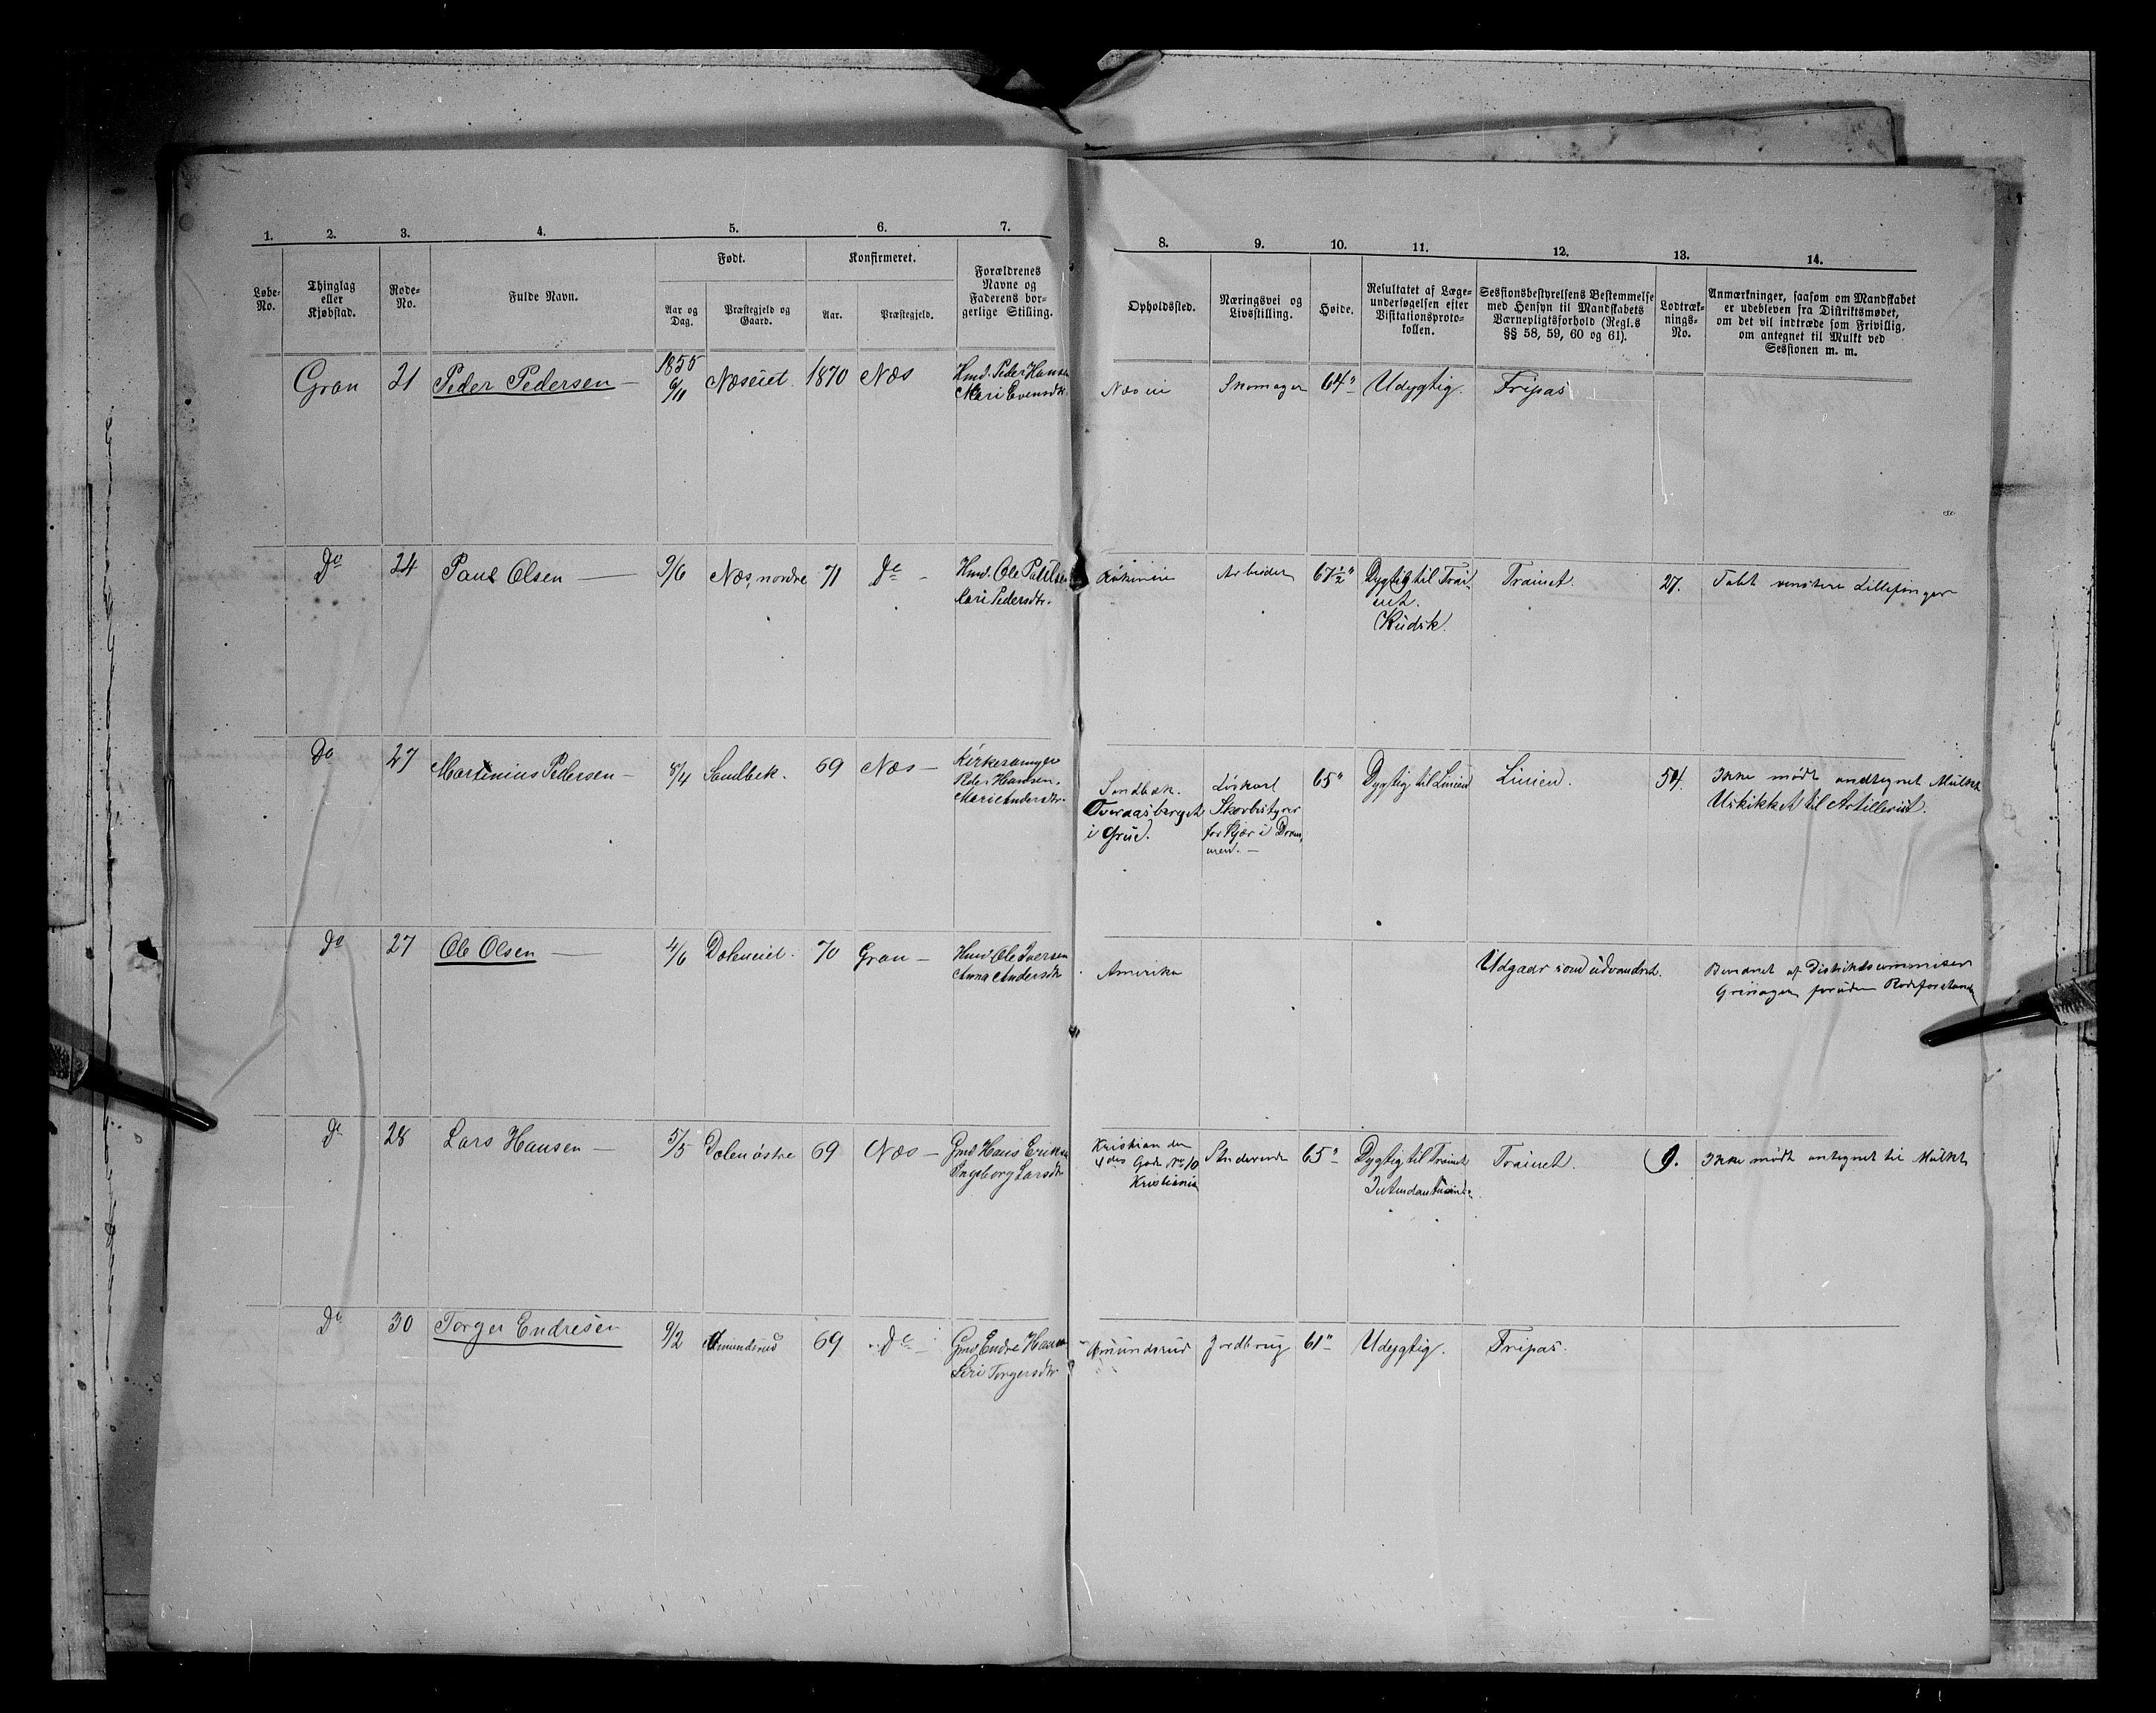 1. 2. 3. 4. 5. 6. 7. 8. 9. 10. 11. 12. 13. 14.
Løbe-
No.
Thinglag
eller
Kjøbstad.
Rode-
No.
Fulde Navn.
Født.
Aar og
Dag.
Præstegjeld og
Gaard.
Konfirmeret.
Aar.
Præstegjeld.
Forældrenes
Navne og
Faderens bor-
gerlige Stilling.
Opholdssted.
Næringsvei og
Livsstilling.
Høide.
Resultatet af Læge-
undersøgelsen efter
Visitationsproto-
kollen.
Sessionsbestyrelsens Bestemmelse
med Hensyn til Mandskabets
Værnepligtsforhold (Regl.s
§§ 58, 59, 60 og 61).
Lodtræk-
nings-
No.
Anmærkninger, saasom om Mandskabet
er udebleven fra Distriktsmødet,
om det vil indtræde som Frivillig,
om antegnet til Mulkt ved
Sessionen m. m.
Gran 21 Peder Pedersen — 1855 6/11 Næseiet. 1870 Næs
Hmd. Peder Hansen
Mari Evensdtr.
Næseie Skomager 64" Udygtig. Fripas
Do 24 Paul Olsen — 9/6 Næs, nordre 71 Do -
Hmd. Ole Paulsen
Kari Pedersdtr.
Arbeider 67½"
Dygtig til Trai-
net.
Kudsk.
Trainet. 27. Tabt venstre Lillefinger
Do 27 Martinius Pedersen — 8/4 Sandbek. 69 Næs —
Kirkesanger
Peder Hansen.
Marie Andersdtr.
Sandbæk.
Tveraasberget
i Grue.
Løskarl
Skovbestyrer
for Kjær i Dram-
men. —
65" Dygtig til Linien Linien. 54. Ikke mødt andtegnet Mulkt
Uskikket til Artilleriet.
Do 27 Ole Olsen — 4/6 Doleneiet. 70 Gran —
Hmd. Ole Iversen
Anna Andersdtr
Amerika Udgaar som udvandret.
af Distriktscommissær
Grinager foruden Rodeforstander
Do 28 Lars Hansen — 5/5 Dolen østre 69 Næs —
Gmd Hans Eriksen
Ingeborg Larsdtr
Kristian den
4des Gade No 10
Kristiania
Studerende 65" Dygtig til Trainet
Trainet. 9. Ikke mødt antegnet til Mulkt
Do 30 Torger Endresen 9/2 Amundsrud 69 Do -
Gmd Endre Hansen
Siri Torgersdtr
Amundsrud Jordbrug 61" Udygtig. Fripas.